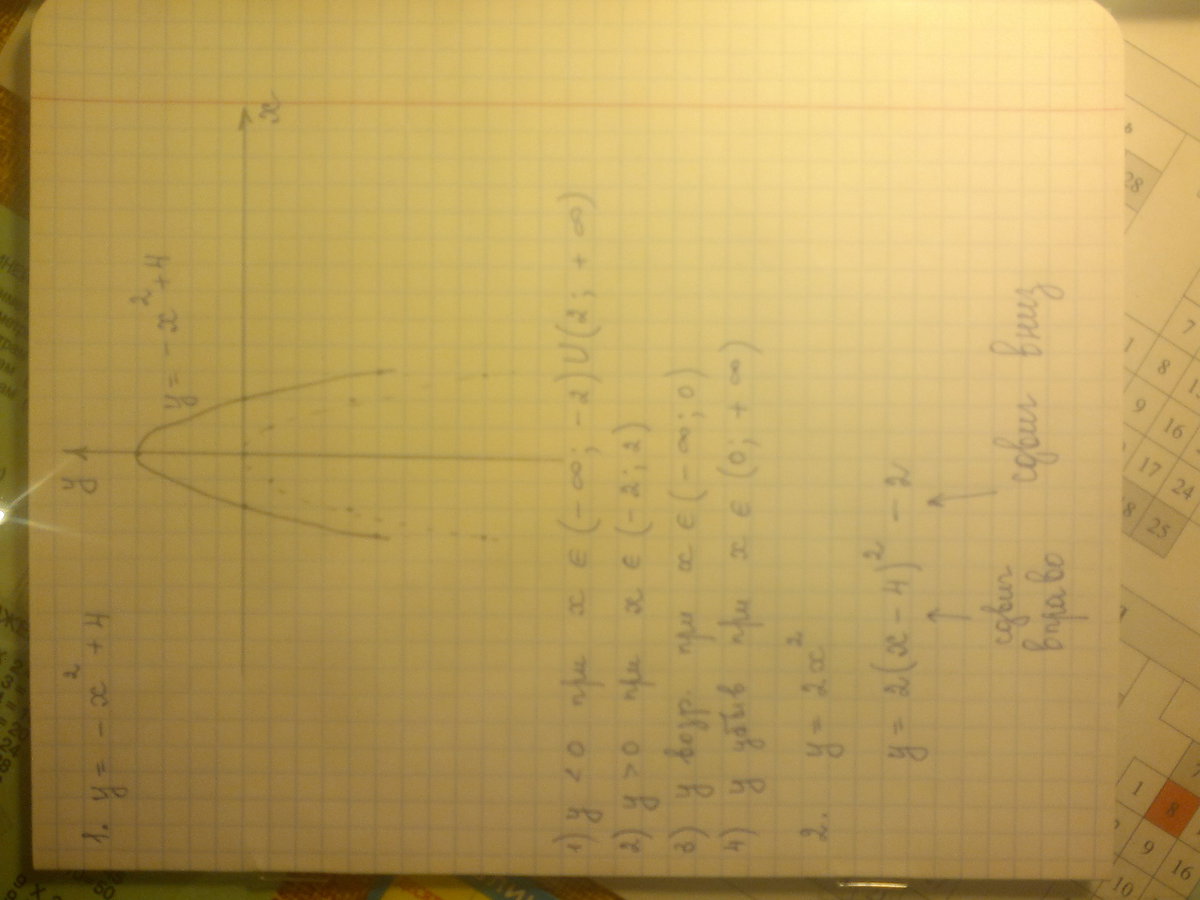 1. y = - x² + 4
y
y = - x² + 4
x
1) y < 0 при x ∈ (- ∞; - 2) U (2; + ∞)
2) y > 0 при x ∈ (- 2; 2)
3) y возр. при x ∈ (- ∞; 0)
4) y убыв при x ∈ (0; + ∞)
2. y = 2x²
y = 2(x - 4)² - 2
сдвиг вправо
сдвиг вниз
6
28
7
1
8
9
16
17
24
25
1
8
9
16
10